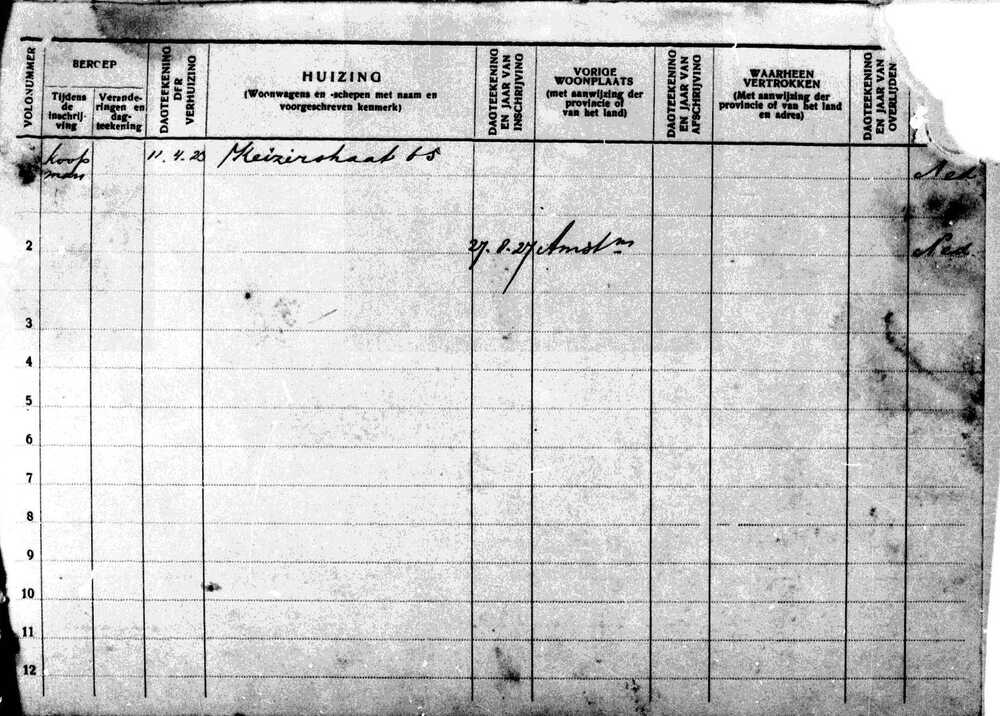 VOLGNUMMER
BEROEP
Tijdens
de
inschrij-
ving
Verande-
ringen en
dag-
teekening
DAGTEEKENING
DER
VERHUIZING
HUIZING
(Woonwagens en -schepen met naam en
voorgeschreven kenmerk)
DAGTEEKENING
EN JAAR VAN
INSCHRIJVING
VORIGE
WOONPLAATS
(met aanwijzing der
provincie of
van het land)
DAGTEEKENING
EN JAAR VAN
AFSCHRIJVING
WAARHEEN
VERTROKKEN
(Met aanwijzing der
provincie of van het land
en adres)
DAGTEEKENING
EN JAAR VAN
OVERLIJDEN
koop
man
11.4.23 Keizerstraat 65
Ned
2 27.8.27 Amstm Ned.
3
4
5
6
7
8
9
10
11
12